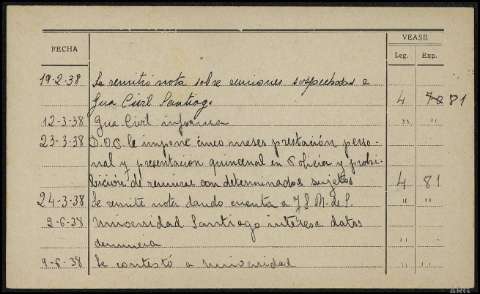 VEASE
FECHA Leg. Exp.
19-2-38 Se remitió nota sobre reuniones sospechosas a
Gua Civil Santiago 4 7281
12-3-38 Gua Civil informa " "
23-3-38 D.O.P. le impone cinco meses prestación perso-
nal y presentacion quincenal en Policia y prohi-
bición de reunirse con determinados sujetos 4 81
24-3-38 Se remite nota dando cuenta a J.S. M. de P. " "
9-6-38 Universidad Santiago interesa datos
denuncia "
9-6-38 Se contestó a Universidad